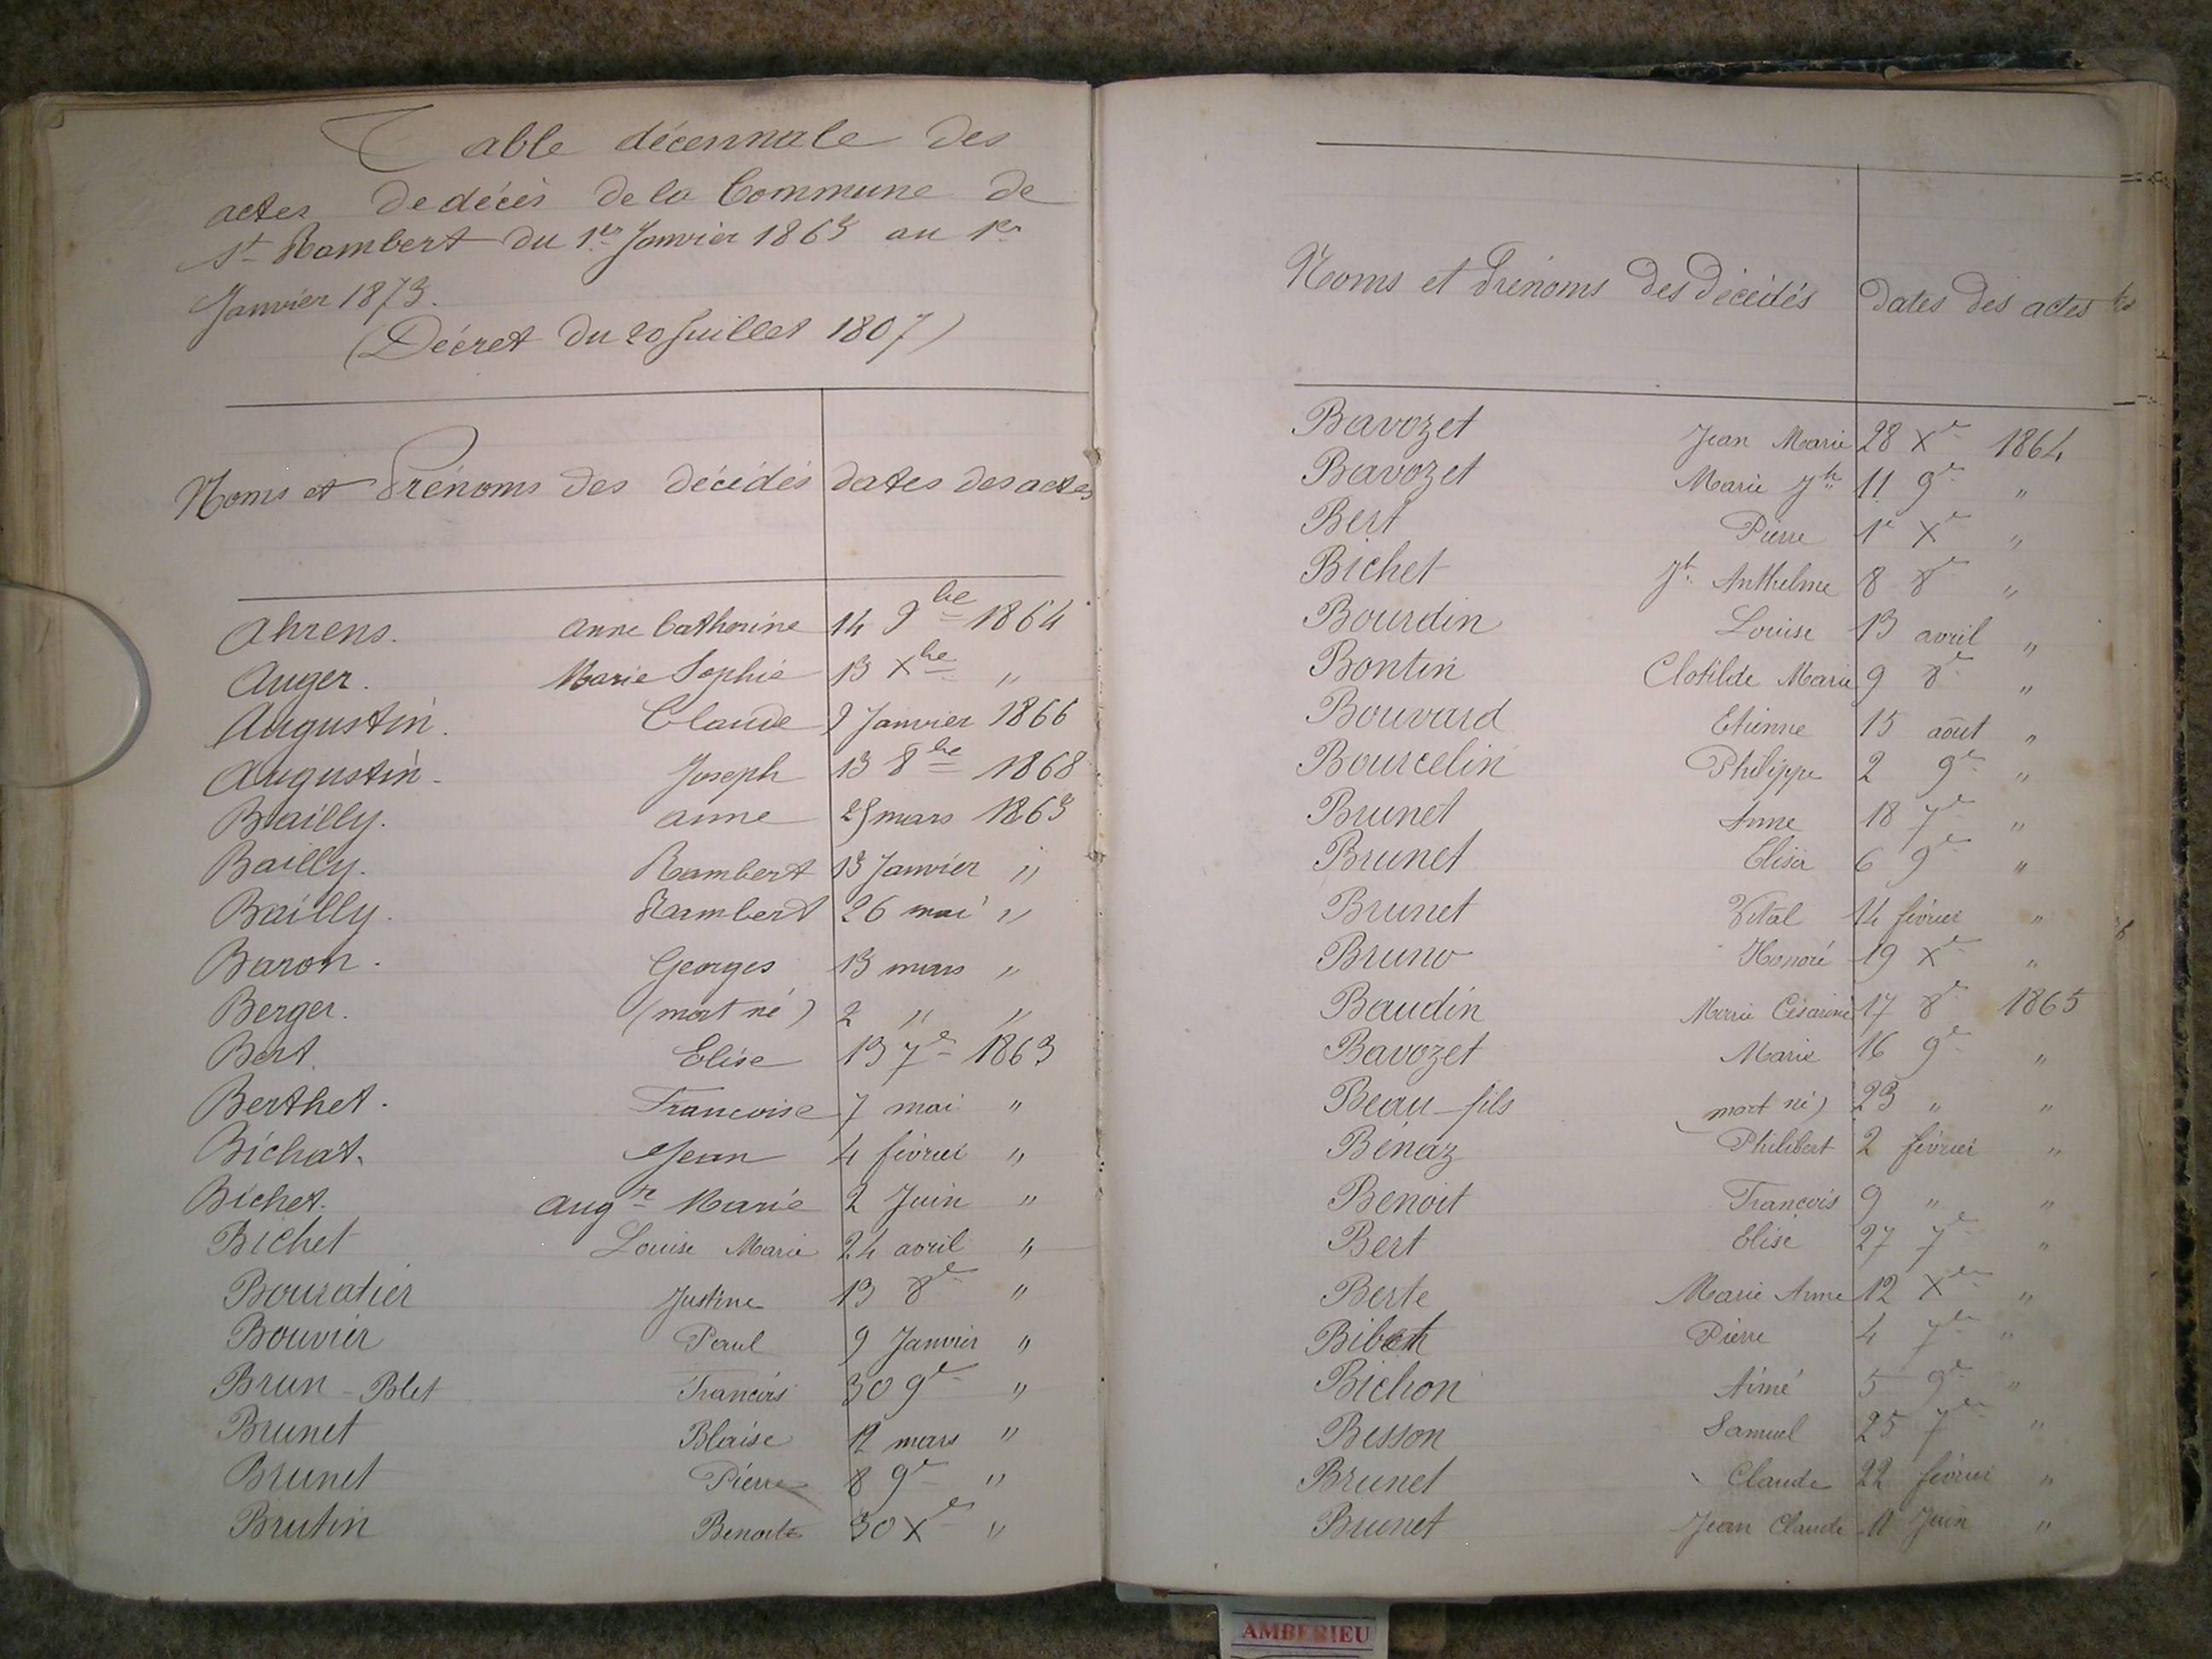 Table décennale des
actes de décès de la Commune de
St Rambert du 1er Janvier 1863 au 1er
Janvier 1873.
(Décret du 20 Juillet 1807)
Noms et Prénoms des décédés dates des actes
Ahrens. Anne Catherine 14 9bre 1864
Auger. Marie Sophie 13 Xbre "
Augustin. Claude 9 Janvier 1866
Augustin. Joseph 13 8bre 1868
Bailly. Anne mars 1863
Bailly. Rambert 13 Janvier "
Bailly. Rambert 26 mai "
Baron. Georges 13 mars "
Berger. (mort né) 2 " "
Bert. Elise 13 7e 1863
Berthet. Francoise 7 mai "
Bichat. Jean 4 février "
Bichet. Augte Marie 2 Juin "
Bichet Louise Marie 24 avril "
Bouratier Justine 13 8e "
Bouvier Paul 9 Janvier "
Brun-Blet Francois 30 9e "
Brunet Blaise 12 mars "
Brunet Pierre 8 9e "
Brutin Benoite 30 Xe "
Noms et Prénoms des Décédés Dates des actes
Bavozet Jean Marie 28 Xe 1864
Bavozet Marie Jh 11 9e "
Bert Pierre 1e Xe "
Bichet Jh Anthelme 8 8e "
Bourdin Louise 13 avril "
Bontin Clotilde Marie 9 8e "
Bouvard Etienne 15 août "
Bourcelin Philippe 2 9e "
Brunet Anne 18 7e "
Brunet Elisa 6 9e "
Brunet Vital 14 février "
Bruno Honoré 19 Xe "
Baudin Marie Césarine 17 8e 1865
Bavozet Marie 16 9e "
Beau-fils mort né) 23 " "
Bénaz Philibert 2 février "
Benoit Francois 9 " "
Bert Elise 27 7e "
Berte Marie Anne 12 Xe "
Pierre 4 7e "
Bichon Aimé 5 9e "
Besson Samuel 25 7e "
Brunet Claude 22 février "
Brunet Jean Claude 11 Juin "
AMBERIEU